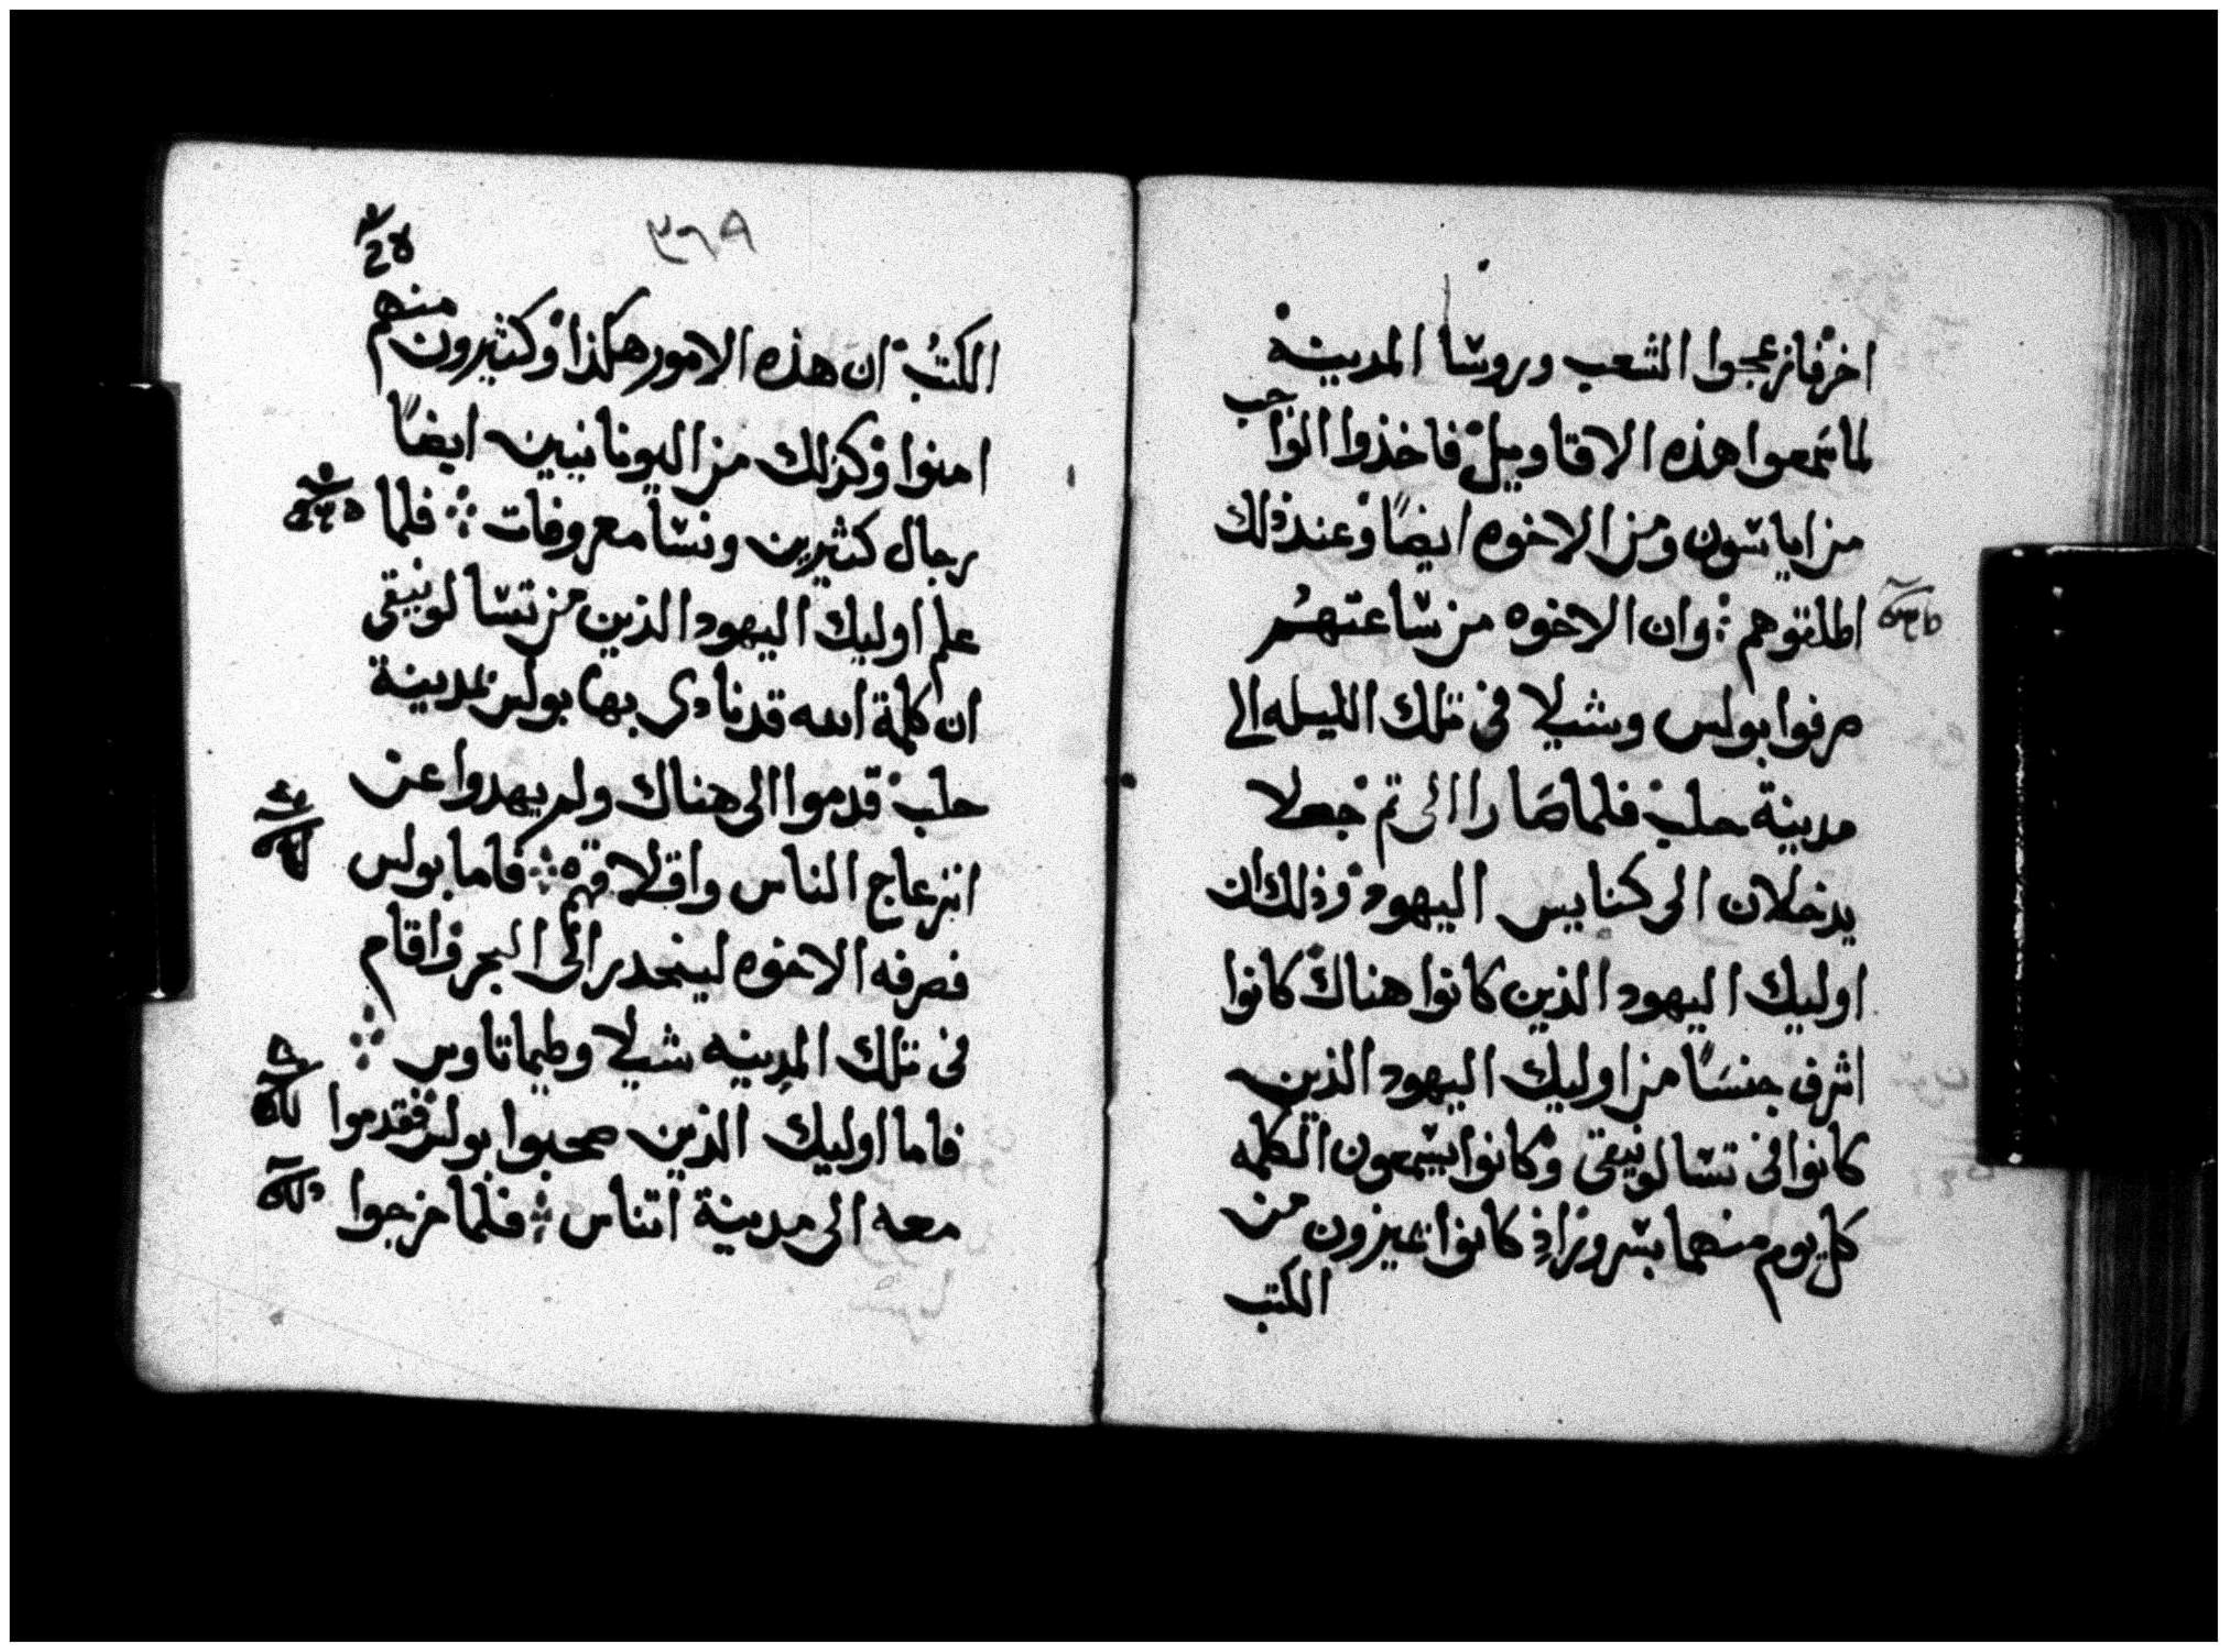 اخر فانزعجوا الشعب وروسا المدينه
لما سمعوا هذه الاقاويل فاخذوا الواجب
من اياسون ومن الاخوه ايضًا وعند ذلك
اطلقوهم ؛ وان الاخوه من ساعتهم
صرفوا بولس وشيلا في تلك الليله الى
مدينة حلب فلما صارا الى تم جعلا
يدخلان الى كنايس اليهود وذلك ان
اوليك اليهود الذين كانوا هناك كانوا
اشرف جنسًا من اوليك اليهود الذين
كانوا في تسالونيقى وكانوا يسمعون الكلمه
كل يوم منهما بسرور اذ كانوا يميزون من
الكتب
٣٦٩
الكتب ان هذه الامور هكذا وكثيرون منهم
امنوا وكذلك من اليونانيين ايضًا
رجال كثيرين ونسا معروفات ؛ فلما
علم اوليك اليهود الذين من تسالونيقى
ان كلمة الله قد نادى بها بولس بمدينة
حلب قدموا الى هناك ولم يهدوا عن
انزعاج الناس واقلاقهم ؛ فاما بولس
فصرفه الاخوه لينحدر الى البحر واقام
في تلك المدينه شيلا وطيماتاوس ؛
فاما اوليك الذين صحبوا بولس فقدموا
معه الى مدينة اتناس ؛ فلما خرجوا